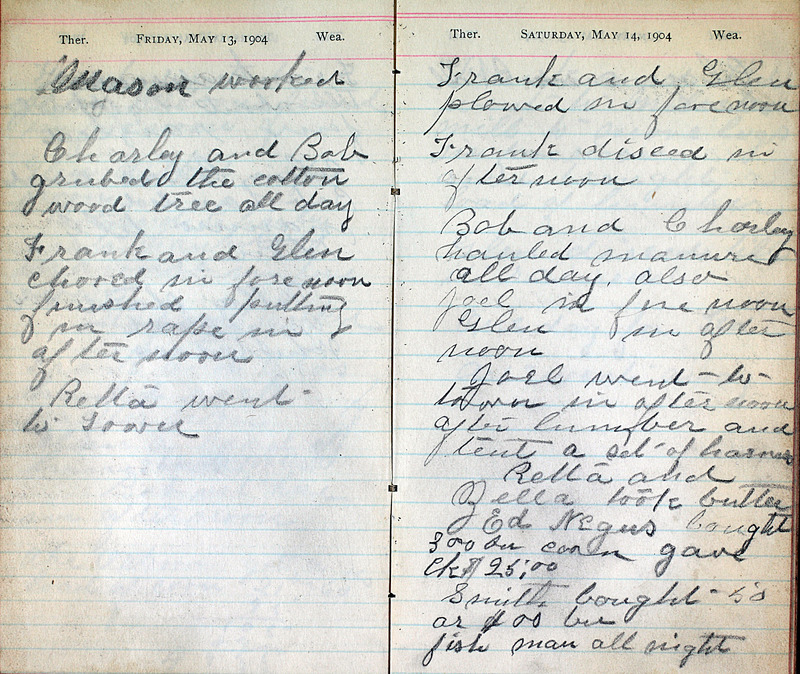 Ther. FRIDAY, MAY 13, 1904 Wea.
Mason worked
Charley and Bob
grubed the cotton
wood tree all day
Frank and Glen
chored in fore noon
finished putting
in rape in
after noon
Retta went
to Town
Ther. SATURDAY, MAY 14, 1904 Wea.
Frank and Glen
plowed in fore noon
Frank disced in
after noon
Bob and Charley
hauled manure
all day, also
Joel in fore noon
Glen in after
noon
Joel went to
town in after noon
after lumber and
a set of harness
Retta and
Zella took butter
Ed Negus bought
300 bu corn gave
ck $25,00
Smith bought 50
or 100 bu
fish man all night